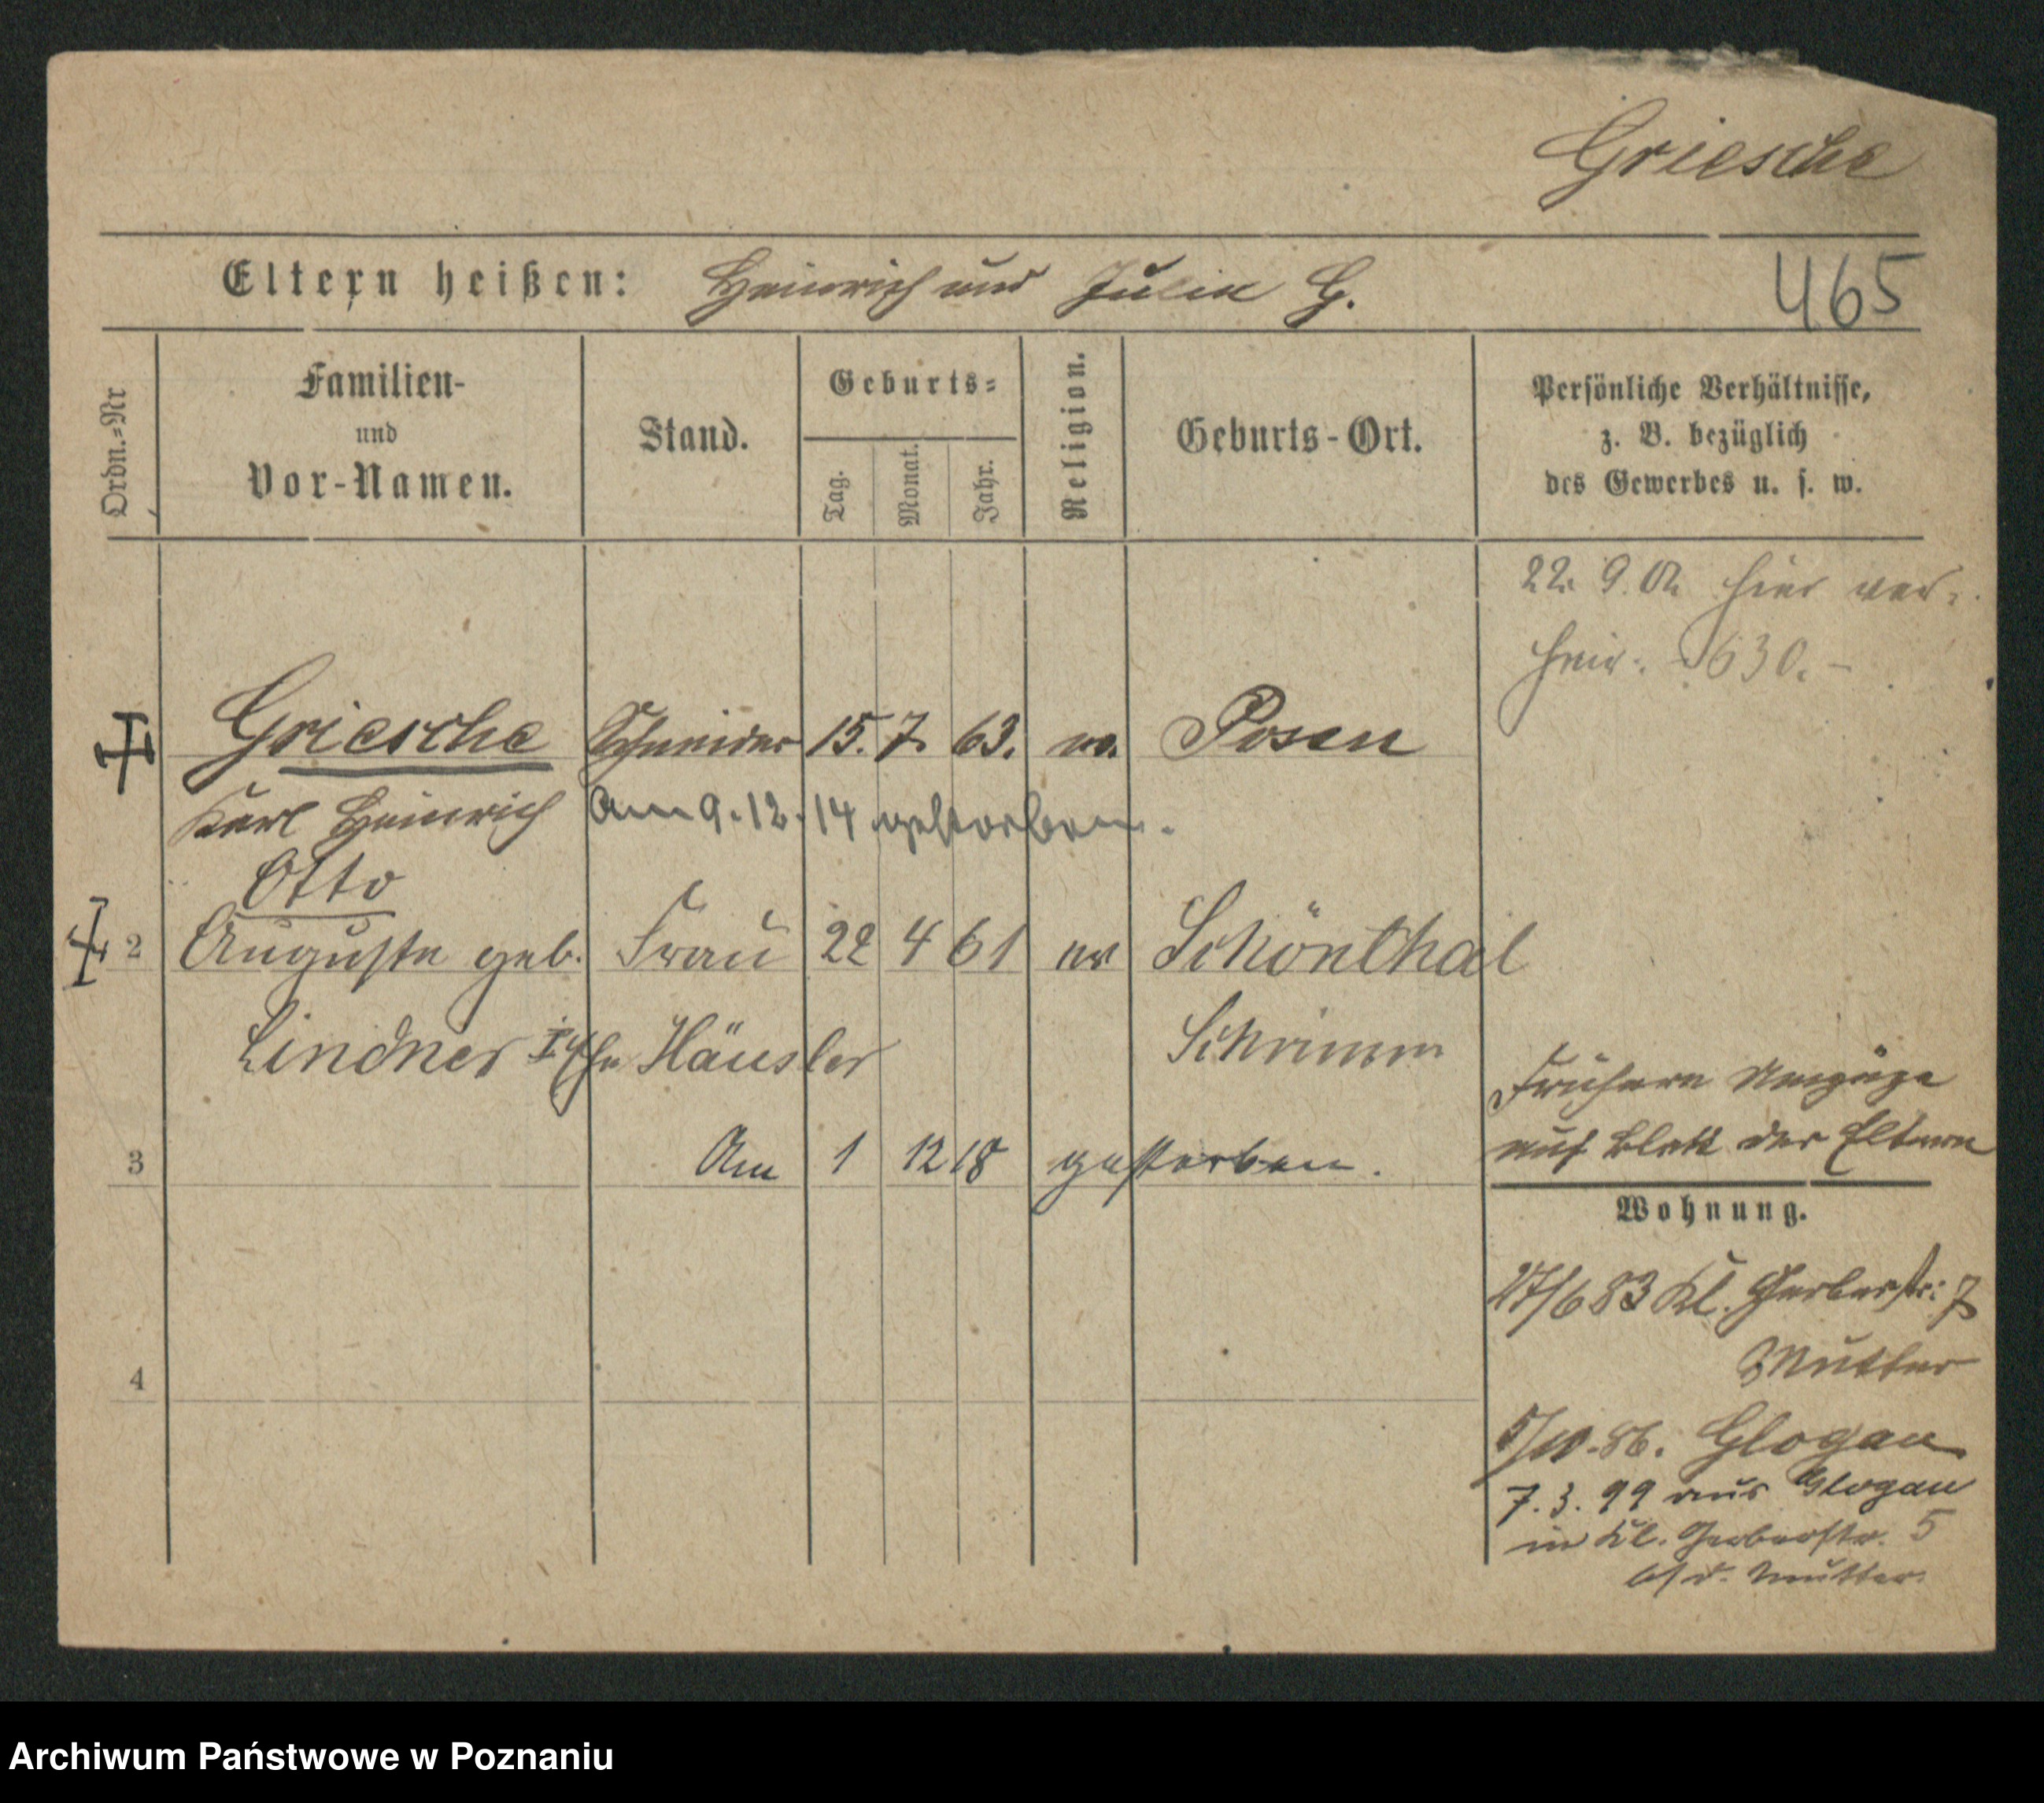 Griesche
Eltern heißen: Heinrich und Julie G.
465
Ordn.=Nr
Familien-
und
Vor-Namen.
Stand.
Geburts=
Tag.
Monat.
Jahr.
Religion.
Geburts-Ort.
Persönliche Verhältnisse,
z. B. bezüglich
des Gewerbes u. s. w.
22. 9. 02 hier ver-
heir. 630.-
Griesche Schneider 15. 7. 63. ev. Posen
Karl Heinrich am 9. 12. 14 gestorben.
Otto
2 Auguste geb. Frau 22 4 61 ev Schönthal
Lindner Häusler Schrimm
Frühere Umzüge
auf Blatt der Eltern
3 Am 1 12 18 gestorben.
Wohnung.
27/6 83 Kl. Gerberstr: 7
Mutter
4
86. Glogau
7. 3. 99 aus Glogau
in Kl. Gerberstr. 5
b/d. Mutter.
Archiwum Państwowe w Poznaniu